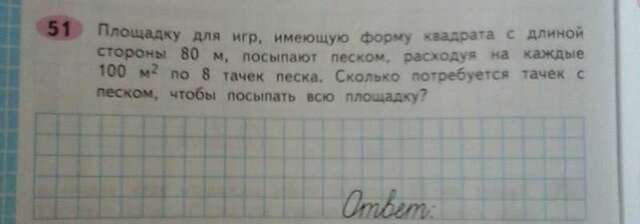 51 Площадку для игр, имеющую форму квадрата с длиной
стороны 80 м, посыпают песком, расходуя на каждые
100 м² по 8 тачек песка. Сколько потребуется тачек с
песком, чтобы посыпать всю площадку?
Ответ: